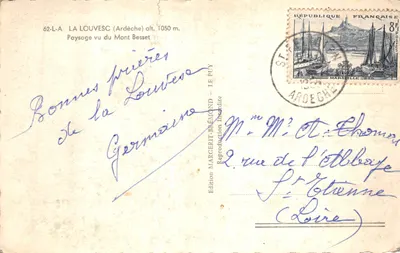 62-L-A. LA LOUVESC (Ardèche) alt. 1050 m.
Paysage vu du Mont Besset
Bonnes prières
de la Louvesc
Germaine
Edition MARGERIT-BRÉMOND - LE PUY
Reproduction interdite
RÉPUBLIQUE FRANÇAISE
8f
ST
ARDECHE
Mme Mr A. Thomas
2 rue de l'Abbaye
St Etienne
(Loire)